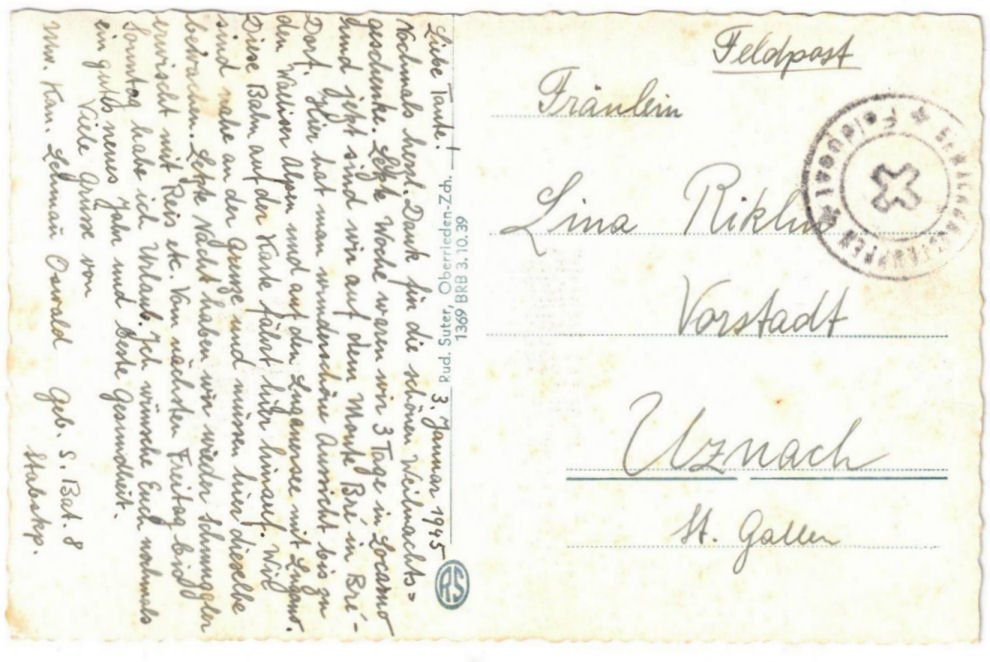 3. Januar 1945
Liebe Tante!
Nochmals herzl. Dank für die schönen Weihnachts=
geschenke. Letzte Woche waren wir 3 Tage in Locarno
und jetzt sind wir auf dem Monte Brè in Brè-
Dorf. Hier hat man wunderschöne Aussicht bis zu
den Walliser Alpen und auf den Luganersee mit Lugano.
Diese Bahn auf der Karte fährt hier hinauf. Wir
sind nahe an der Grenze und müssen hier dieselbe
bewachen. Letzte Nacht haben wir wieder Schmuggler
erwischt mit Reis etc. Vom nächsten Freitag bis
Sonntag habe ich Urlaub. Ich wünsche Euch nochmals
ein gutes neues Jahr und beste Gesundheit.
Viele Grüsse von
Mw. Kan. Oswald Geb. S. Bat. 8
Stabskp.
Rud. Suter, Oberrieden-Zch.
1369 BRB 3.10.39
RS
Feldpost
Fräulein
Lina Riklin
Vorstadt
Uznach
St. Gallen
Feldpost